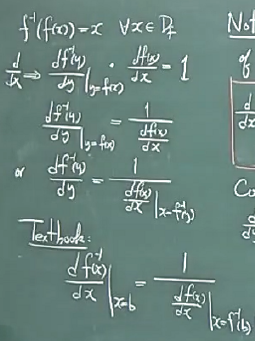 f⁻¹(f(x)) = x ∀x ∈ D_f
d/dx ⇒ df⁻¹(y)/dy |_{y=f(x)} · df(x)/dx = 1
df⁻¹(y)/dy |_{y=f(x)} = 1/(df(x)/dx)
or df⁻¹(y)/dy = 1/(df(x)/dx |_{x=f⁻¹(y)})
Textbook:
df⁻¹(x)/dx |_{x=b} = 1/(df(x)/dx |_{x=f⁻¹(b)})
Not
of
d/dx
Co